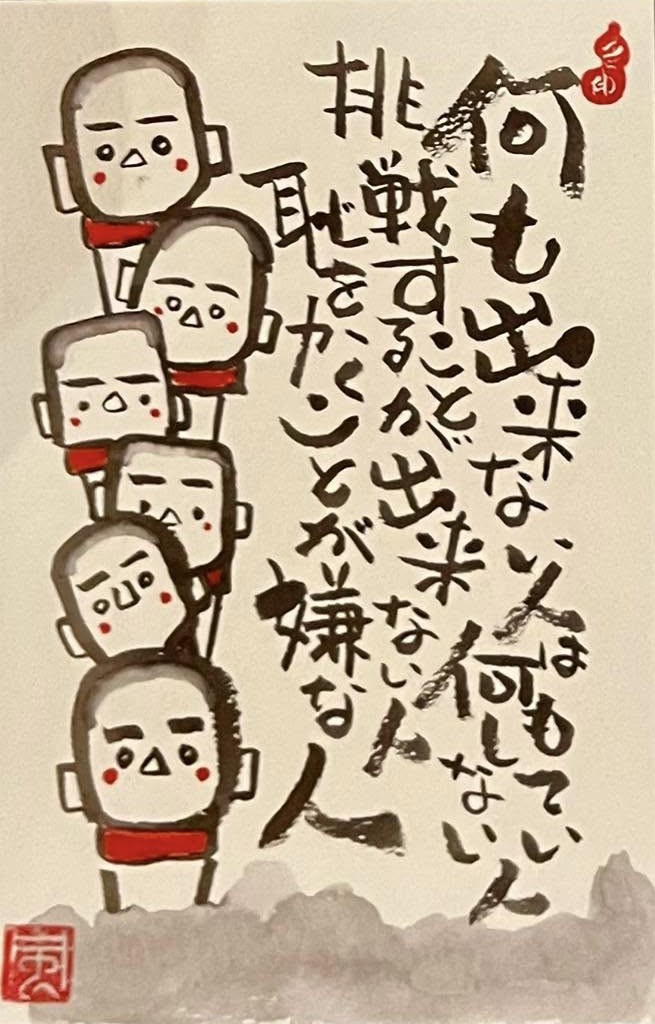 何も出来ない人は何もしていない人
挑戦することが出来ない人
恥をかくことが嫌な人